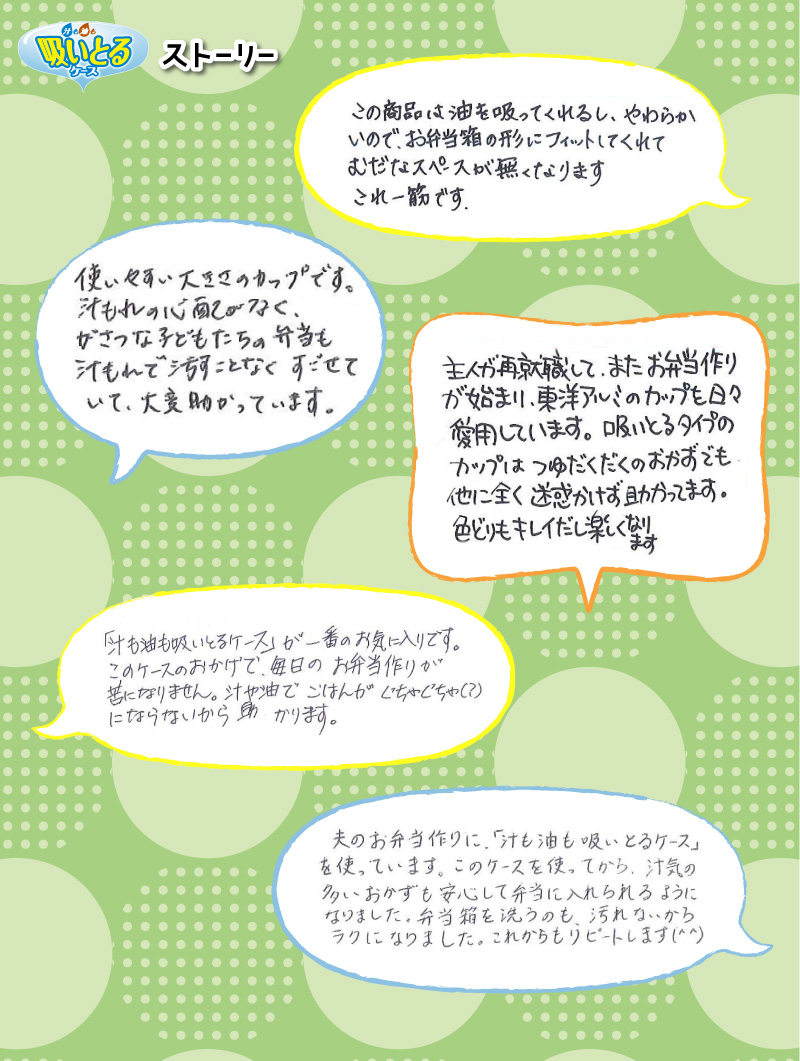 汁も油も
吸いとる
ケース
ストーリー
この商品は油を吸ってくれるし、やわらか
いので、お弁当箱の形にフィットしてくれて
むだなスペースが無くなります
これ一筋です.
使いやすい大きさのカップです。
汁もれの心配がなく、
がさつな子どもたちの弁当も
汁もれで汚すことなくすごせて
いて、大変助かっています。
主人が再就職して、またお弁当作り
が始まり、東洋アルミのカップを日々
愛用しています。吸いとるタイプの
カップはつゆだくだくのおかずでも
他に全く迷惑かけず助かってます。
色どりもキレイだし楽しくなり
ます
「汁も油も吸いとるケース」が一番のお気に入りです。
このケースのおかげで、毎日のお弁当作りが
苦になりません。汁や油でごはんがぐちゃぐちゃ(?)
にならないから助かります。
夫のお弁当作りに、「汁も油も吸いとるケース」
を使っています。このケースを使ってから、汁気の
多いおかずも安心して弁当に入れられるように
なりました。弁当箱を洗うのも、汚れないから
ラクになりました。これからもリピートします(^^)